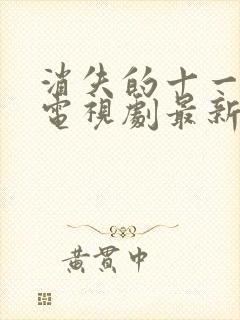 消失的十一
電視劇最新
黃貫中